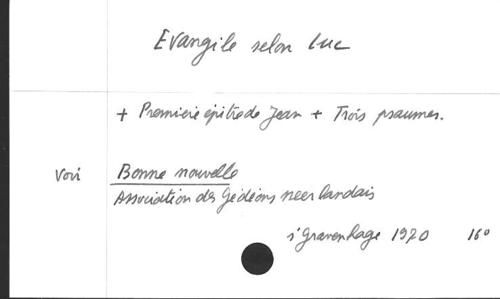 Evangile selon Luc
+ Première épitre de Jean + Trois psaumes.
Voir Bonne nouvelle
Association des Gédéons neerlandais
s'Gravenhage 1970 16°